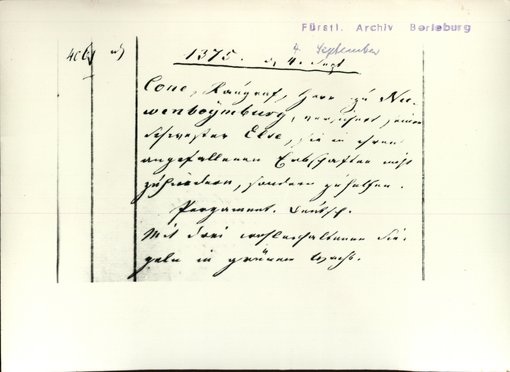 Fürstl. Archiv Berleburg
4. September
1375. d. 4. Sept
Cone, Raugraf, Herr zu Neu-
wenboÿmburg, versichert seiner
Schwester Else, sie in ihren
angefallenen Erbschaften nicht
zu hindern, sondern zu helfen.
Pergament. Deutsch.
Mit drei wohlerhaltenen Sie-
geln in grünem Wachs.